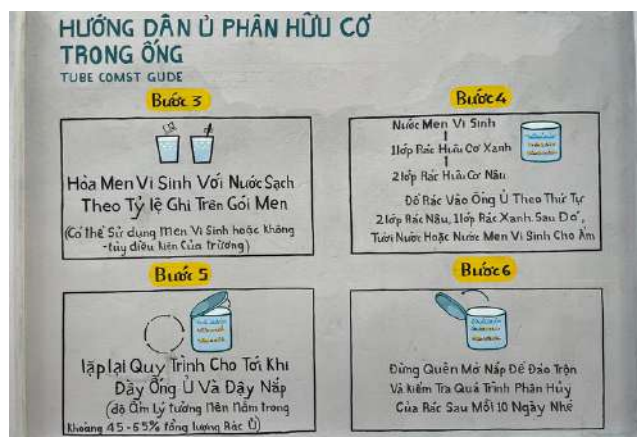 HƯỚNG DẪN Ủ PHÂN HỮU CƠ
TRONG ỐNG
TUBE COMST GUDE
Bước 3
Hòa Men Vi Sinh Với Nước Sạch
Theo Tỷ lệ Ghi Trên Gói Men
(Có thể Sử dụng Men Vi Sinh hoặc không
-tùy điều kiện Của Trường)
Bước 4
Nước Men Vi Sinh
1 lớp Rác Hữu Cơ Xanh
2 lớp Rác Hữu Cơ Nâu
Đổ Rác Vào Ống Ủ Theo Thứ Tự
2 lớp Rác Nâu, 1 lớp Rác Xanh Sau Đó,
Tưới Nước Hoặc Nước Men Vi Sinh Cho Ẩm
Bước 5
lặp lại Quy Trình Cho Tới Khi
Đầy Ống Ủ Và Đậy Nắp
(độ Ẩm Lý tưởng Nên Nằm trong
khoảng 45-65% tổng lượng Rác Ủ)
Bước 6
Đừng Quên Mở Nắp Để Đảo Trộn
Và kiểm Tra Quá Trình Phân Hủy
Của Rác Sau Mỗi 10 Ngày Nhé